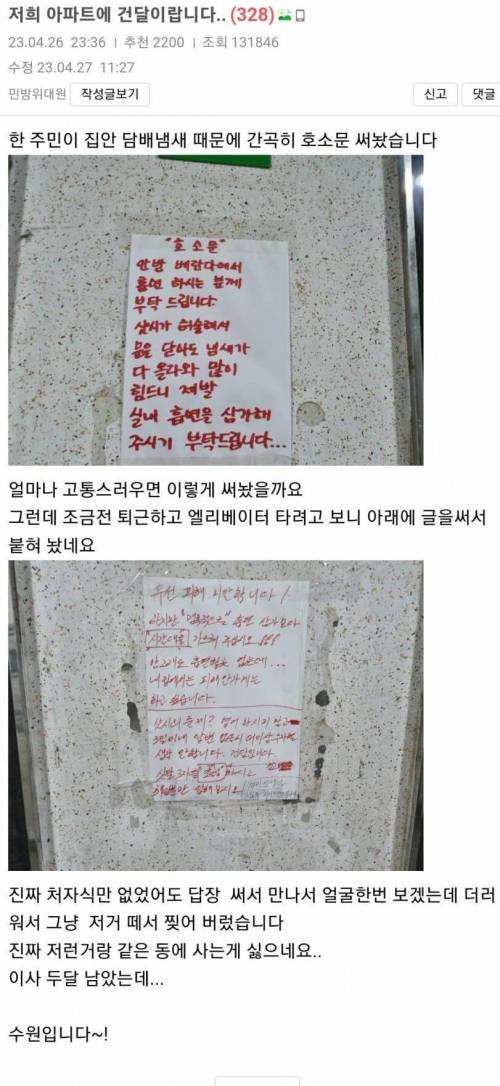 저희 아파트에 건달이랍니다.. (328)
23.04.26 23:36 | 추천 2200 | 조회 131846
수정 23.04.27 11:27
민방위대원 작성글보기 신고 댓글
한 주민이 집안 담배냄새 때문에 간곡히 호소문 써놨습니다
"호소문"
안방 베란다에서
흡연 하시는 분께
부탁 드립니다
샷시가 허술해서
문을 닫아도 냄새가
다 올라와 많이
힘드니 제발
실내 흡연을 삼가해
주시기 부탁드립니다...
얼마나 고통스러우면 이렇게 써놨을까요
그런데 조금전 퇴근하고 엘리베이터 타려고 보니 아래에 글을써서
붙혀 놨네요
우선 피해 미안합니다!
하지만
흡연
시간대를
주십시오
안그래도
없는데...
하고 있습니다.
샷시의 문제?
진짜 처자식만 없었어도 답장 써서 만나서 얼굴한번 보겠는데 더러
워서 그냥 저거 떼서 찢어 버렸습니다
진짜 저런거랑 같은 동에 사는게 싫으네요..
이사 두달 남았는데...
수원입니다~!